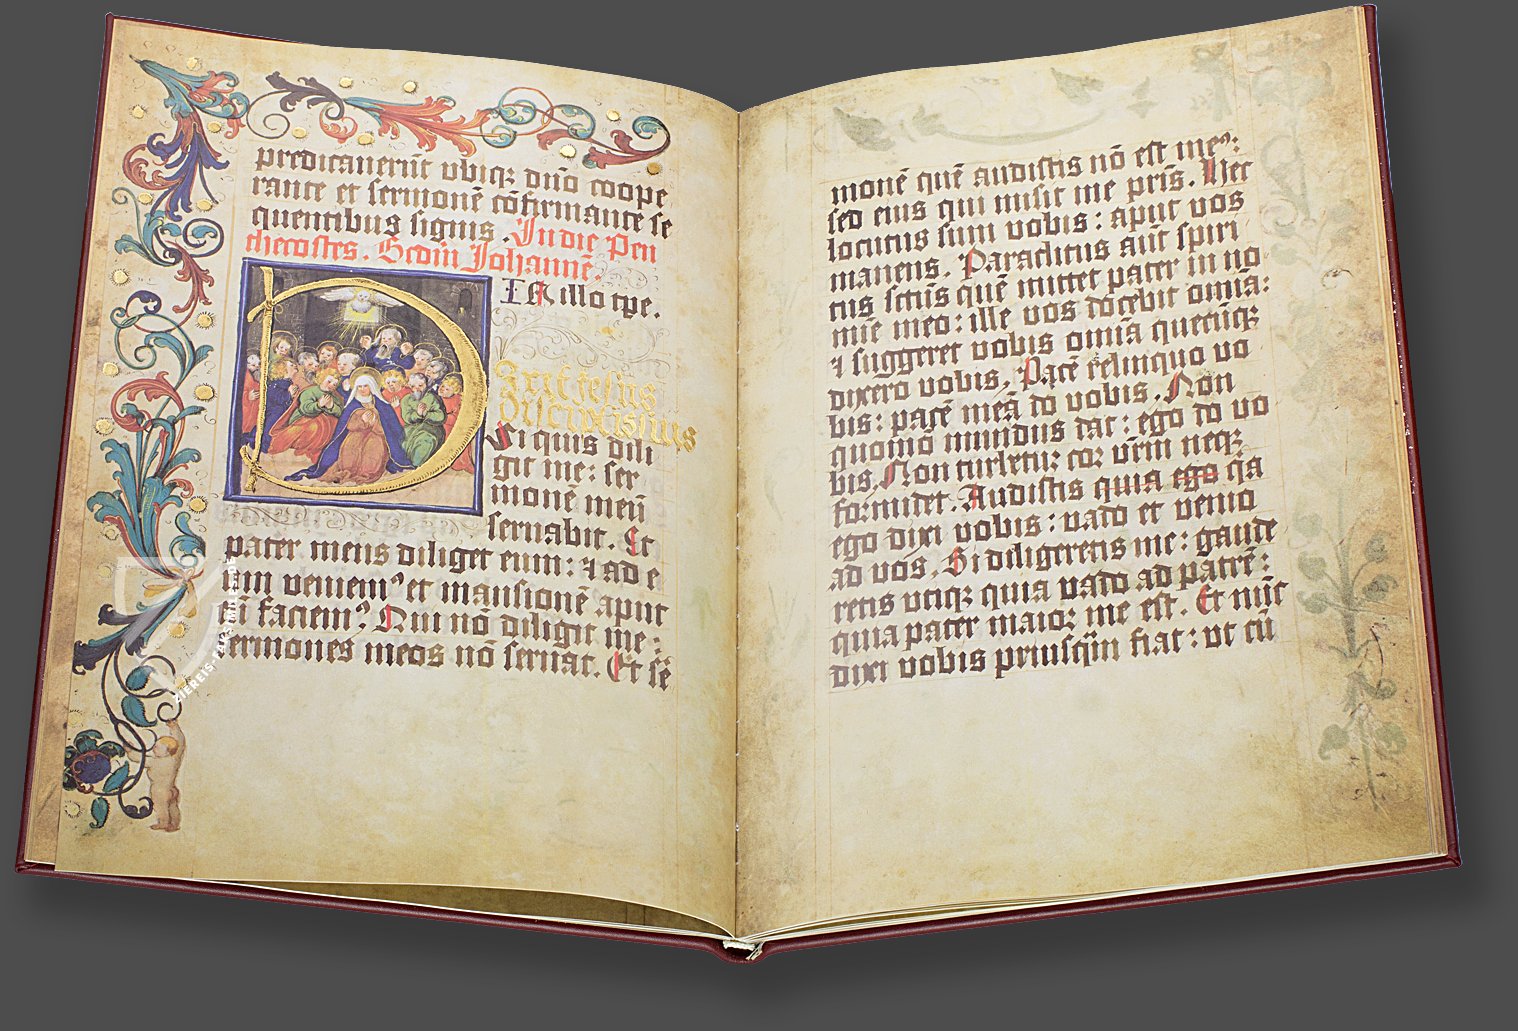 predicauerūt vbiqꝫ dn̄o coope
rante et sermonē cōfirmante se
quentibus signis. In die Pen
thecostes. Scdm̄ Johannē.
IN illo tpe.
Dixit iesus
discipulis suis
Si quis dili
git me: ser
monē meū
seruabit. Et
pater meus diliget eum: ⁊ ad e
um veniemꝰ et mansionē aput
eū faciemꝰ. Qui nō diligit me:
sermones meos nō seruat. Et s̄e
monē quē audistis nō est meꝰ:
sed eius qui misit me pr̄is. Hec
locutus sum vobis: aput vos
manens. Paraclitus aūt spiri
tus sctūs quē mittet pater in no
mīe meo: ille vos docebit omīa:
⁊ suggeret vobis omīa quecūqꝫ
dixero vobis. Pacē relinquo vo
bis: pacē meā do vobis. Non
quomō mundus dat: ego do vo
bis. Non turbetur cor vr̄m neqꝫ
formidet. Audistis quia ego q̄a
ego dixi vobis: vado et venio
ad vos. Si diligeretis me: gaude
retis vtiqꝫ quia vado ad patrē:
quia pater maior me est. Et nūc
dixi vobis priusq̄m fiat: vt cū
ZIEREIS